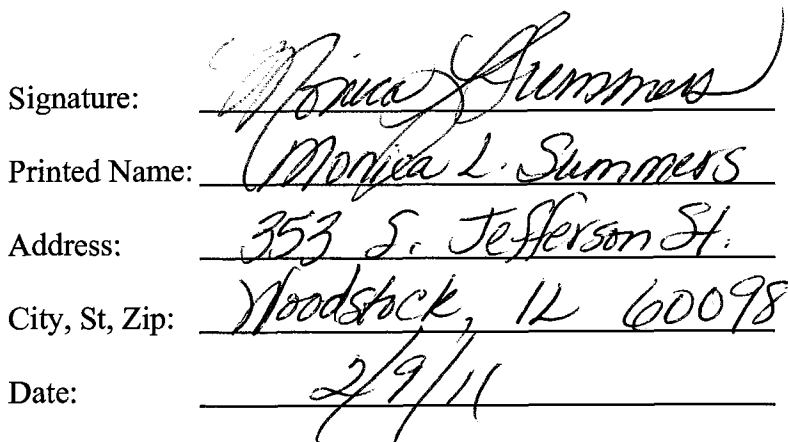 Signature: Monica L Summers
Printed Name: Monica L. Summers
Address: 353 S. Jefferson St.
City, St, Zip: Woodstock, IL 60098
Date: 2/9/11